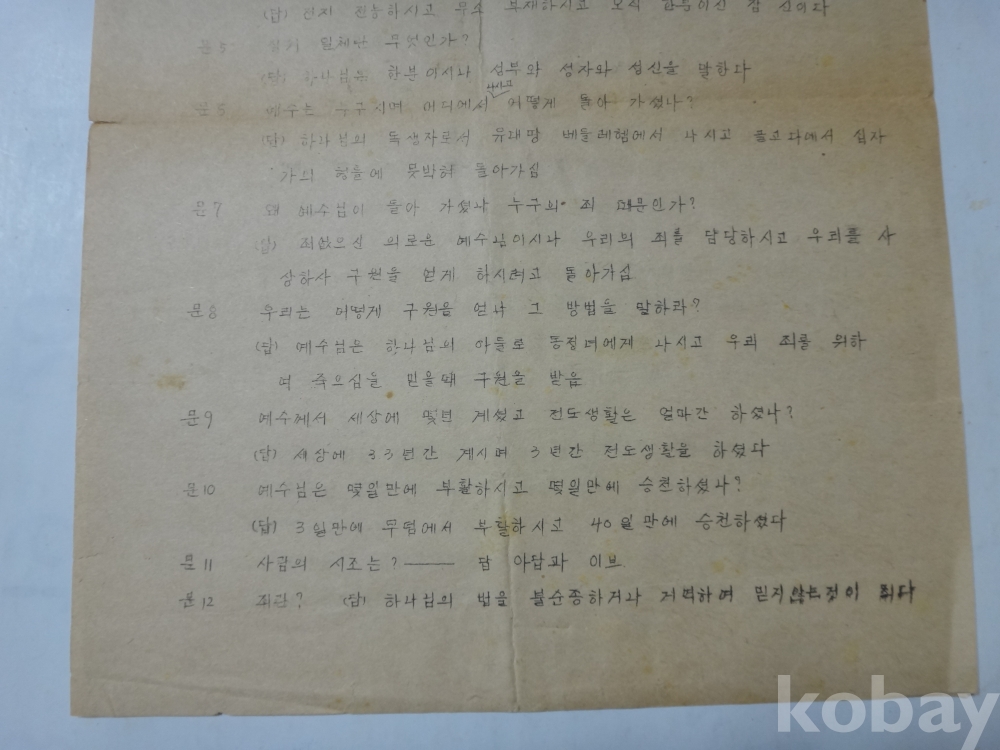 (답) 전지 전능하시고 무소 부재하시고 오직 한분이신 참 신이다
문5 일체란 무엇인가?
(답) 하나님은 한분이시나 성부와 성자와 성신을 말한다
문5 예수는 누구시며 어디에서 나시고 어떻게 돌아 가셨나?
(답) 하나님의 독생자로서 유대땅 베들레헴에서 나시고 골고다에서 십자
가의 형틀에 못박혀 돌아가심
문7 왜 예수님이 돌아 가셨나 누구의 죄 때문인가?
(답) 죄없으신 의로운 예수님이시나 우리의 죄를 담당하시고 우리를 사
상하사 구원을 얻게 하시려고 돌아가심
문8 우리는 어떻게 구원을 얻나 그 방법을 말하라?
(답) 예수님은 하나님의 아들로 동정녀에게 나시고 우리 죄를 위하
여 죽으심을 믿을때 구원을 받음
문9 예수께서 세상에 몇년 계셨고 전도생활은 얼마간 하셨나?
(답) 세상에 33년간 계시며 3년간 전도생활을 하셨다
문10 예수님은 몇일만에 부활하시고 몇일만에 승천하셨나?
(답) 3일만에 무덤에서 부활하시고 40일만에 승천하셨다
문11 사람의 시조는? —— 답 아담과 이브
문12 죄란? (답) 하나님의 법을 불순종하거나 거역하여 믿지않는것이 죄다
kobay